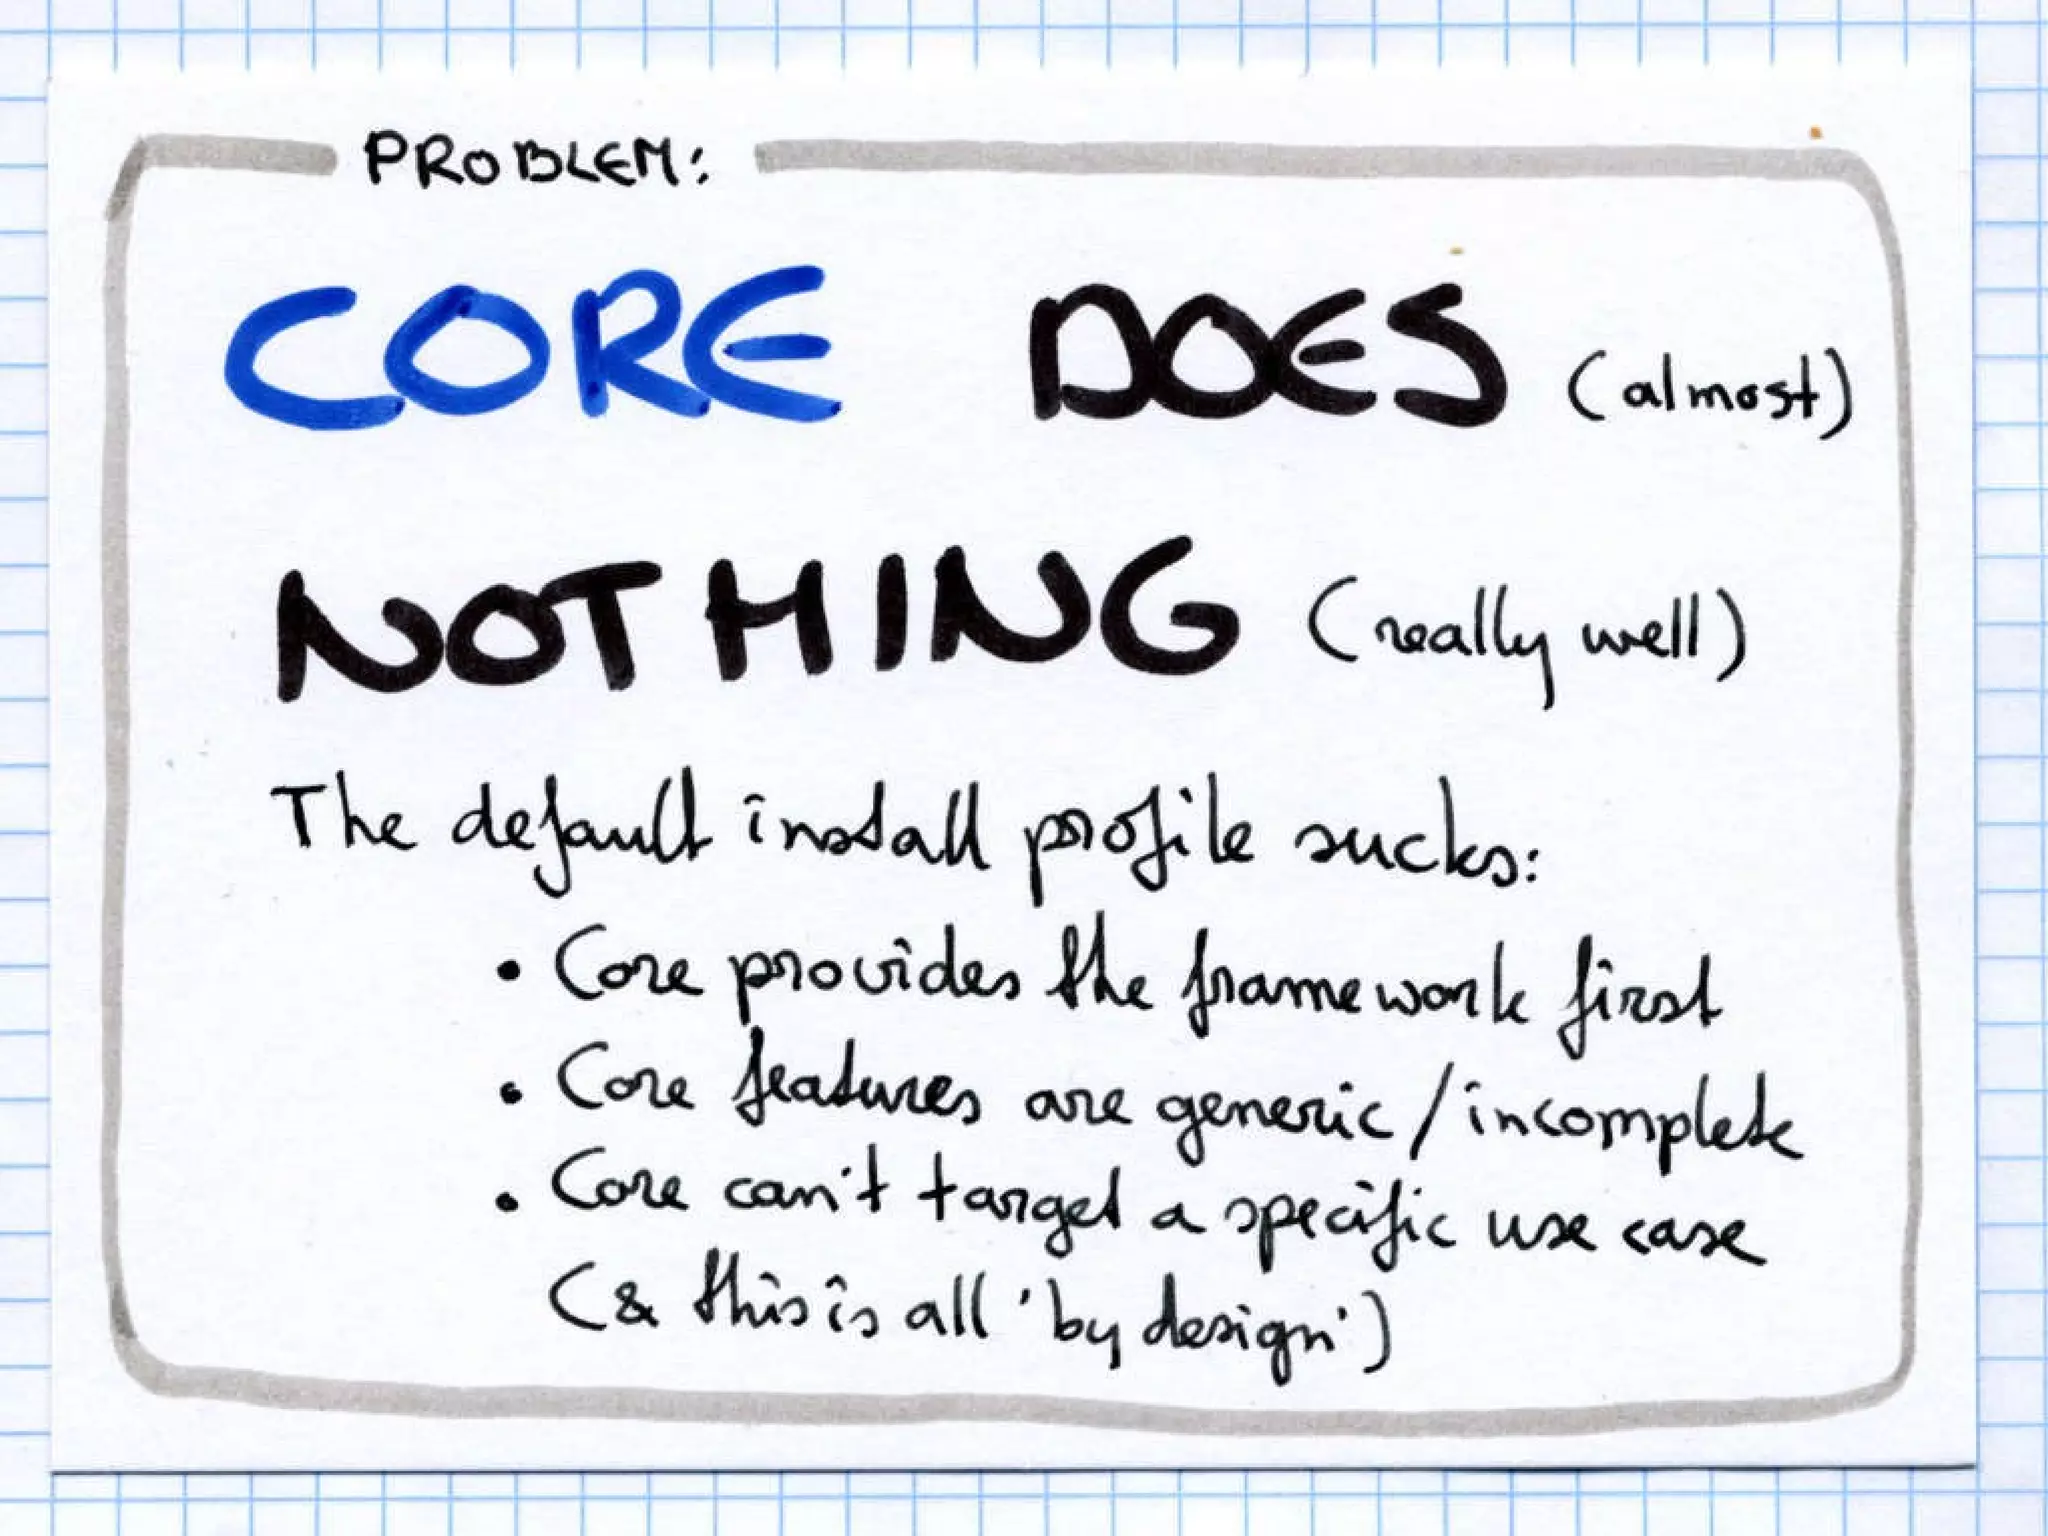 PROBLEM:
CORE DOES (almost)
NOTHING (really well)
The default install profile sucks:
• Core provides the framework first
• Core features are generic/incomplete
• Core can't target a specific use case
(& this is all 'by design')